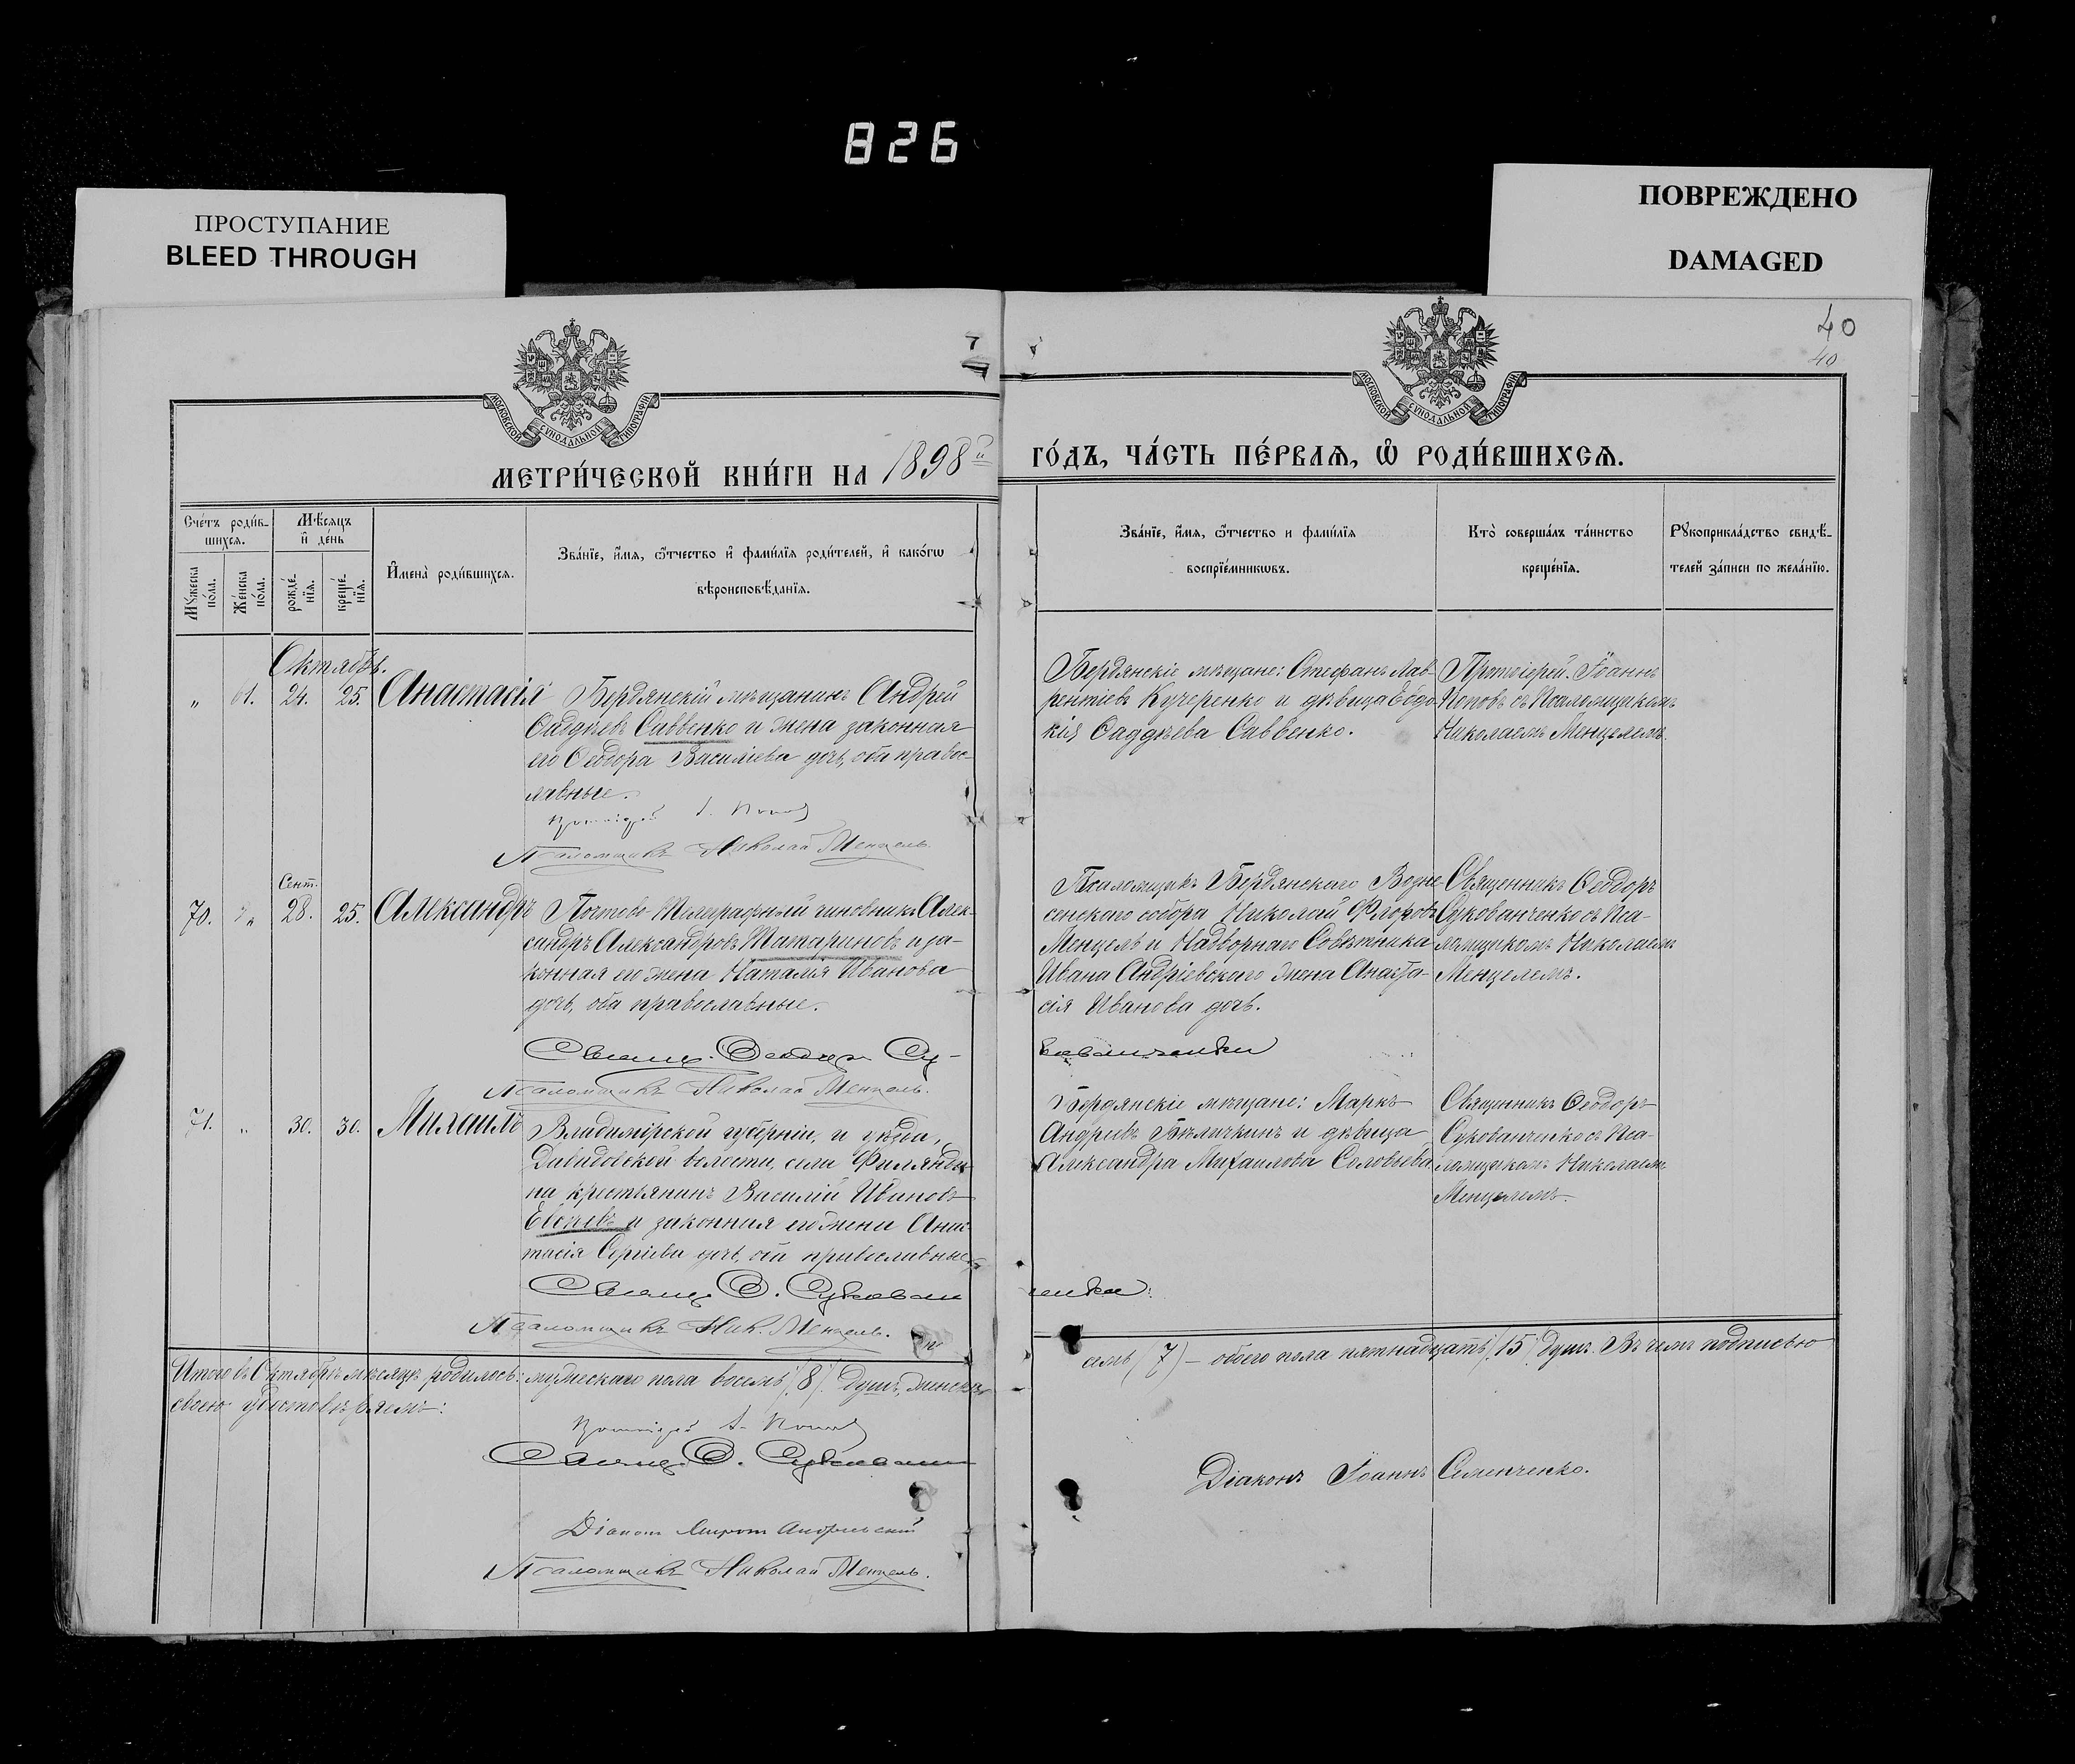 826
ПРОСТУПАНИЕ
BLEED THROUGH
ПОВРЕЖДЕНО
DAMAGED
40
40
7
МОСКОВСКОЙ СѴНОДАЛЬНОЙ ТИПОГРАФІИ
МОСКОВСКОЙ СѴНОДАЛЬНОЙ ТИПОГРАФІИ
МЕТРИ́ЧЕСКОЙ КНИ́ГИ НА 1898й
ГО́ДЪ, ЧА́СТЬ ПЕ́РВАѦ, Ѿ РОДИ́ВШИХСѦ.
Сче́тъ роди́в-
шихсѧ.
Мѣсѧцъ
и҆ де́нь
Мꙋ́жеска
по́ла.
Же́нска
по́ла.
рожде́-
нїѧ.
креще́-
нїѧ.
И҆мена̀ роди́вшихсѧ.
Зва́нїе, и҆́мѧ, ѻ҆́тчество и҆ фами́лїѧ роди́телей, и҆ како́гѡ
вѣроисповѣ́данїѧ.
Зва́нїе, и҆́мѧ, ѻ҆́тчество и фами́лїѧ
воспрїе́мникѡвъ.
Кто̀ соверша́лъ та́инство
креще́нїѧ.
Рꙋкоприкла́дство свидѣ́-
телей за́писи по жела́нїю.
Октябрь.
„ 61. 24. 25. Анастасія
Бердянскій мѣщанинъ Андрей
Ѳаддѣевъ Саввенко и жена законная
его Ѳеодора Василіева дочь, оба правос-
лавные.
Протоіерей І. Поповъ
Псаломщикъ Николай Менцель.
Бердянскіе мѣщане: Стефанъ Лав-
рентіевъ Кучеренко и дѣвица Евдо-
кія Ѳаддѣева Саввенко.
Протоіерей Іоаннъ
Поповъ съ Псаломщикомъ
Николаемъ Менцелемъ.
Сент.
70. „ 28. 25. Александръ
Почтово-Телеграфный чиновникъ Алек-
сандръ Александровъ Татариновъ и за-
конная его жена Наталія Иванова
дочь, оба православные.
Свящ. Ѳеодоръ Су-
кованченко
Псаломщикъ Николай Менцель.
Псаломщикъ Бердянскаго Возне-
сенскаго собора Николай Флоровъ
Менцель и Надворнаго Совѣтника
Ивана Андріевскаго жена Анаста-
сія Иванова дочь.
Священникъ Ѳеодоръ
Сукованченко съ Пса-
ломщикомъ Николаемъ
Менцелемъ.
71. „ 30. 30. Михаилъ
Владимірской губерніи, и уѣзда,
Давидовской волости, села Филянди-
на крестьянинъ Василій Ивановъ
и законная его жена Анас-
тасія Сергіева дочь, оба православные
Свящ. Ѳ. Сукован
ченко:
Псаломщикъ Ник. Менцель.
Бердянскіе мѣщане: Маркъ
Андреевъ и дѣвица
Александра Михаилова Соловьева
Священникъ Ѳеодоръ
Сукованченко съ Пса-
ломщикомъ Николаемъ
Менцелемъ.
Итого въ Октябрѣ мѣсяцѣ родилось: мужескаго пола восемь (8) душъ, женска
семь (7) – обоего пола пятнадцать (15) душъ. Въ чемъ подписью
своею удостовѣряемъ:
Протоіерей І. Поповъ
Свящ. Ѳ. Сукованч
Діаконъ Андріевскій
Діаконъ Іоаннъ Семенченко.
Псаломщикъ Николай Менцель.